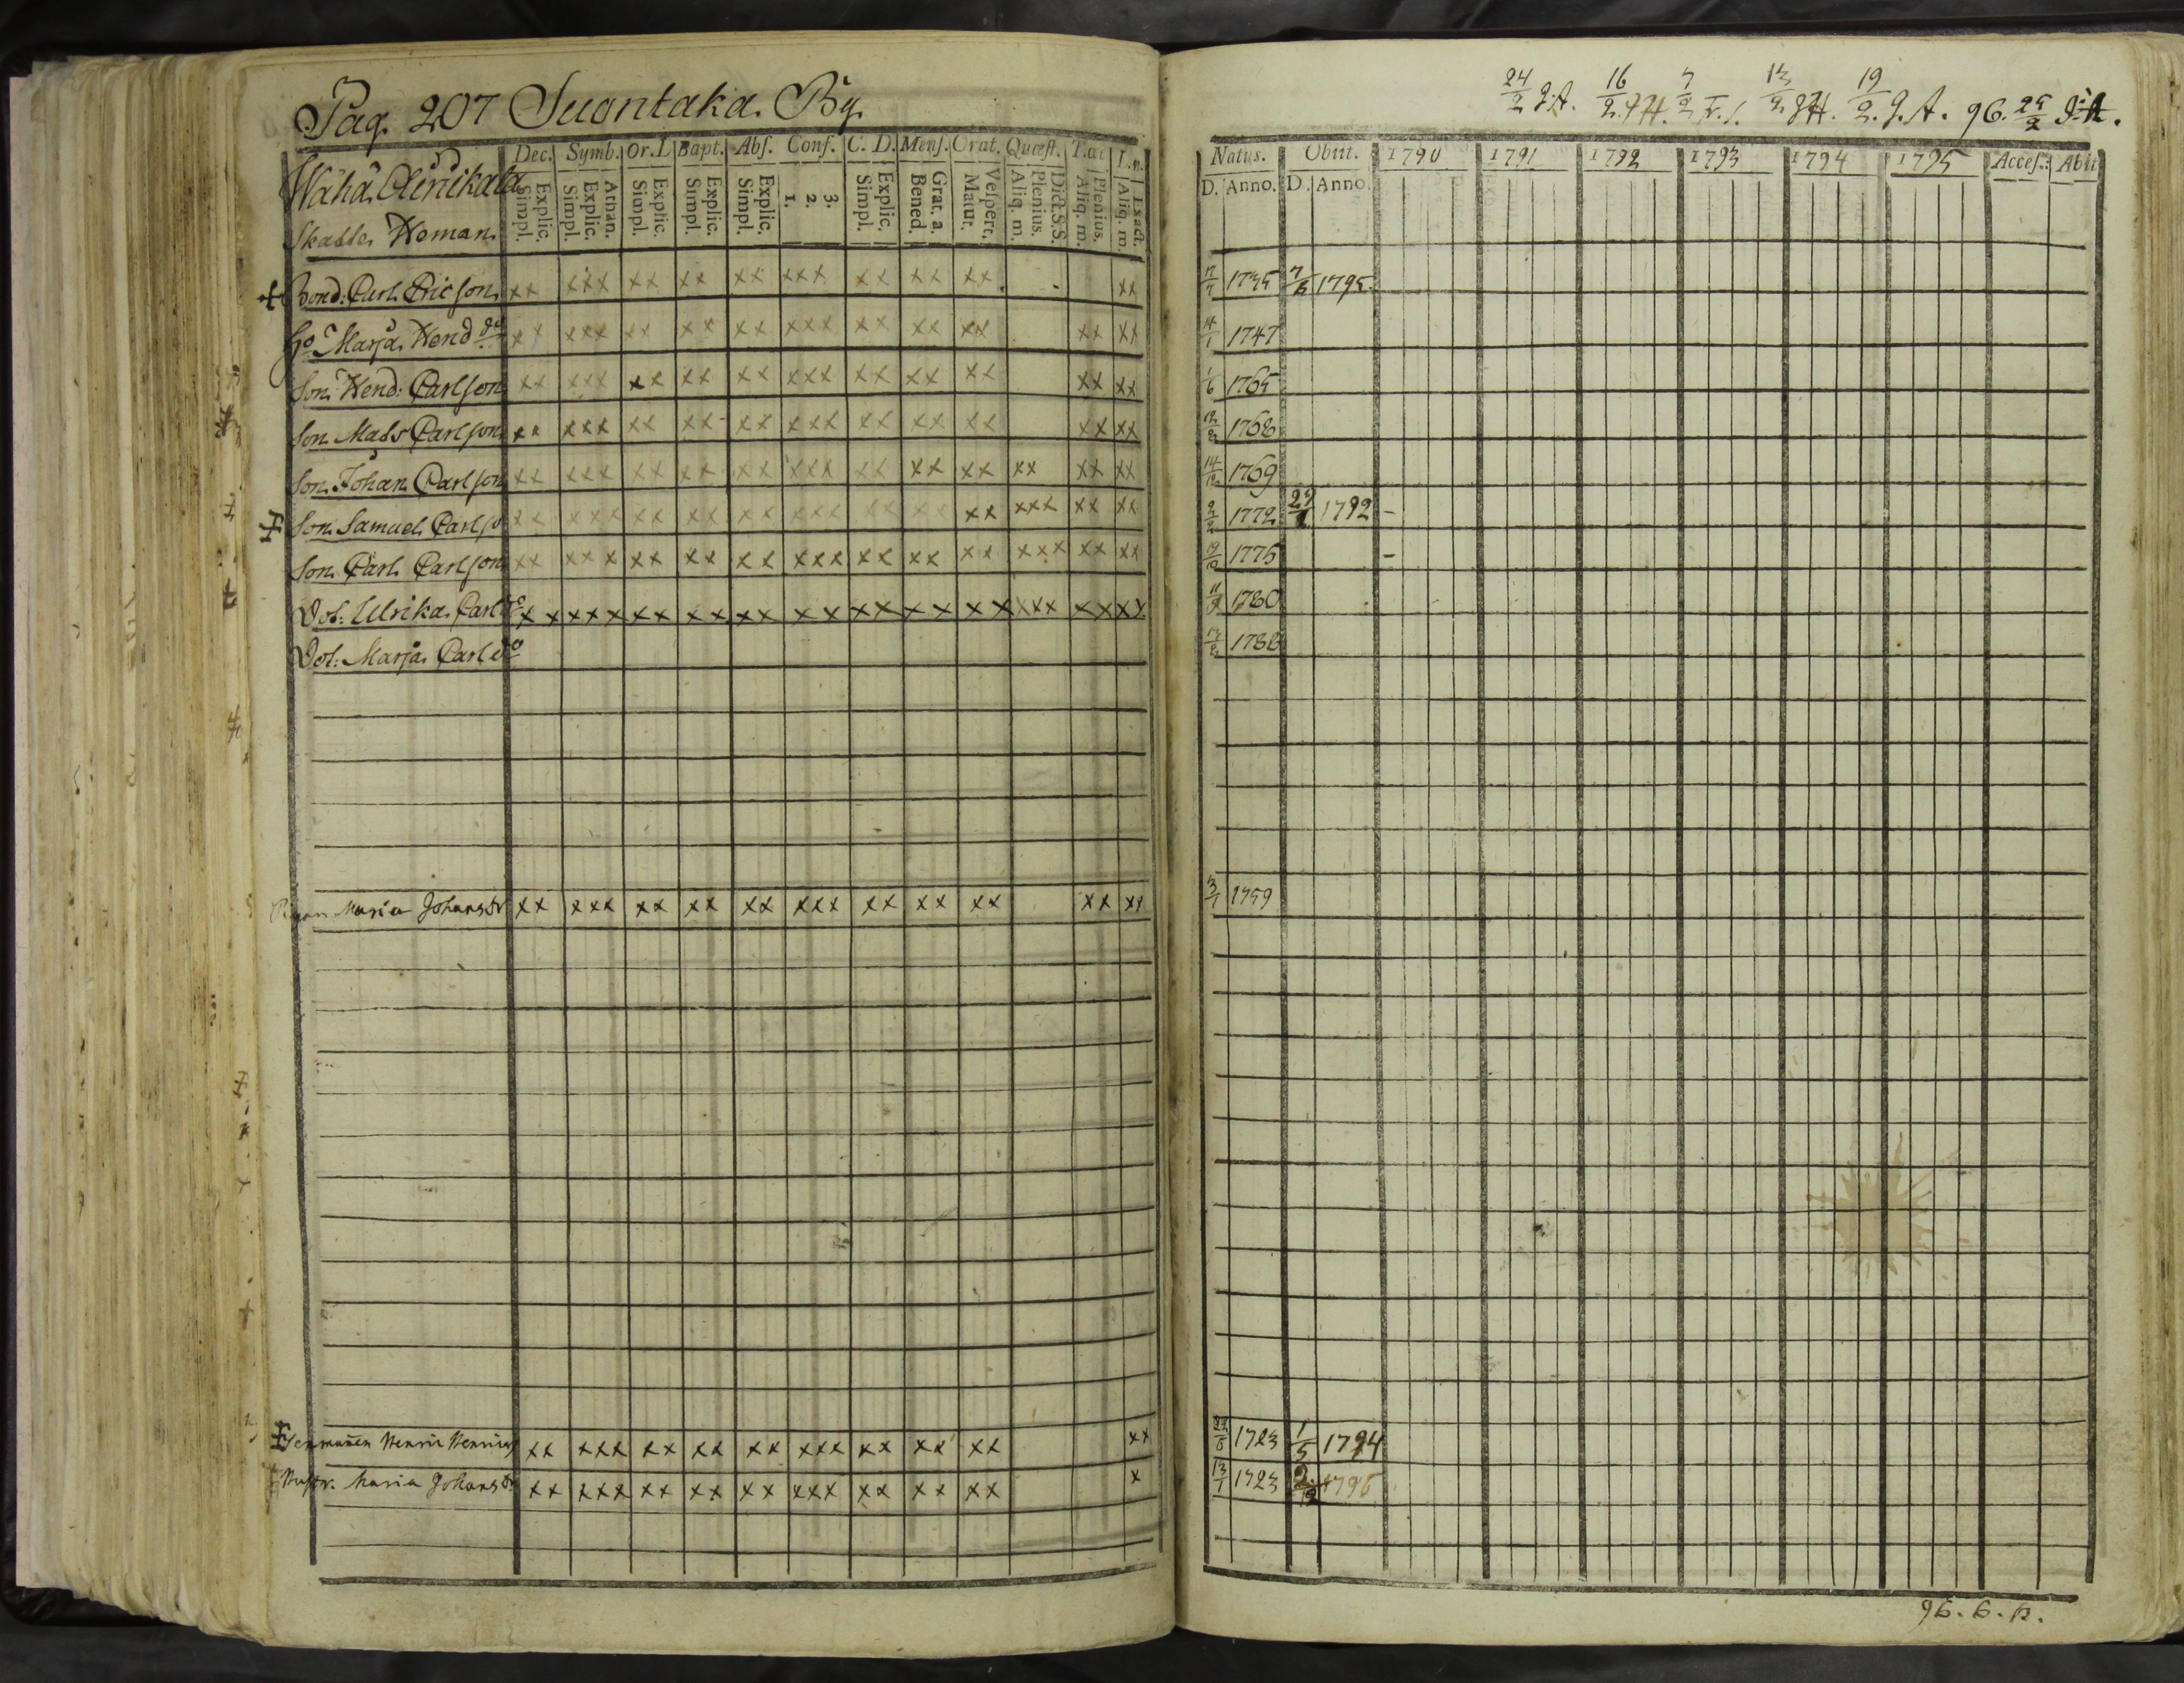 Pag. 207 Suontaka By.
Wähä
Skatte Heman
Dec. Symb. Or. D Bapt. Abs. Conf. C. D. Mens. Orat. Quæst. T. œc L. n.
Explic. Simpl. Athan. Explic. Simpl. Explic. Simpl. Explic. Simpl. Explic. Simpl. 3. 2. 1. Explic. Simpl. Grat. a. Bened. Vespert. Matut. Dict. S.S. Plenius. Aliq. m. Plenius. Aliq. m. Exact. Aliq. m.
+ Bond: Carl Ericson xx xxx xx xx xx xxx xx xx xx xx
Ho Marja Hend do xx xxx xx xx xx xxx xx xx xx xx xx
Son Hend: Carlson xx xxx xx xx xx xxx xx xx xx xx xx
Son Mats Carlson xx xxx xx xx xx xxx xx xx xx xx xx
Son Johan Carlson xx xxx xx xx xx xxx xx xx xx xx xx xx
+ Son Samuel Carlso xx xxx xx xx xx xxx xx xx xx xxx xx xx
Son Carl Carlson xx xxx xx xx xx xxx xx xx xx xxx xx xx
Dot: Ulrika Carl do xx xxx xx xx xx xx xx xx xx xxx xx xx
Dot: Marja Carl do
Maria Johansdr xx xxx xx xx xx xxx xx xx xx xx xx
+ Henric Henrics xx xxx xx xx xx xxx xx xx xx xx
Hustr. Maria Johansdr xx xxx xx xx xx xxx xx xx xx x
24/2 J.A. 16/2. J.H. 7/2 13/2 JH. 19/2. J. A. 96. 25/2 J.A.
Natus. Obiit. 1790 1791 1792 1793 1794 1795 Acces. Abiit
D. Anno. D. Anno.
1735 7/6 1795.
14/1 1747
1/6 1765
1768
14/12 1769
2/2 1772 29/1 1792 -
19/12 1775 -
11/9 1780
1788
3/1 1759
1723 1/5 1794
13/1 1723 2/12 1795
96. 6. p.